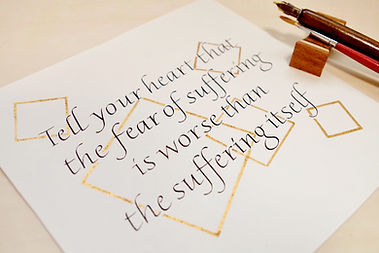 Tell your heart that
the fear of suffering
is worse than
the suffering itself